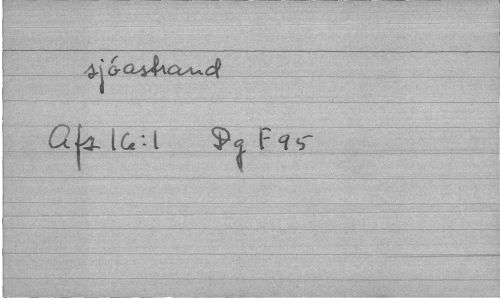 sjóastrand
Afs 16:1 Dg F 95